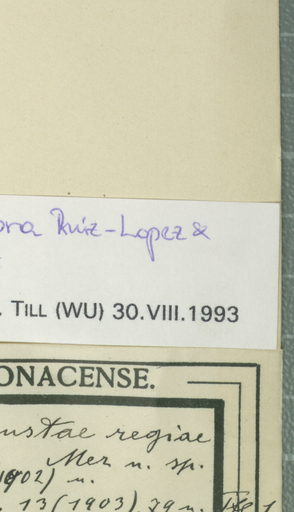 ona Ruiz-Lopez &
. TILL (WU) 30.VIII.1993
ONACENSE.
ustae regiae
Mez n. sp.
1902) n.
. 13 (1903) 79 n.